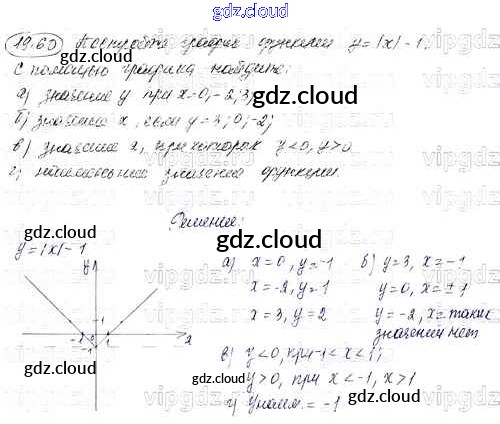 gdz.cloud
19.60 Постройте график функции y=|x|-1.
С помощью графика найдите:
а) значение y при x=0, -2; 3;
б) значение x, если y=3; 0; -2;
в) значение x, при которых y<0, y>0
г) наименьшее значение функции.
Решение:
y=|x|-1
а) x=0, y=-1
x=-2, y=1
x=3, y=2
б) y=3, x=-1
y=0, x=±1
y=-2, x= таких
значений нет
в) y<0, при -1<x<1;
y>0, при x<-1, x>1
г) yнаим. = -1
y
1
-1
1
x
gdz.cloud
gdz.cloud
gdz.cloud
gdz.cloud
gdz.cloud
gdz.cloud
gdz.cloud
gdz.cloud
vipgdz
vipgdz
vipgdz